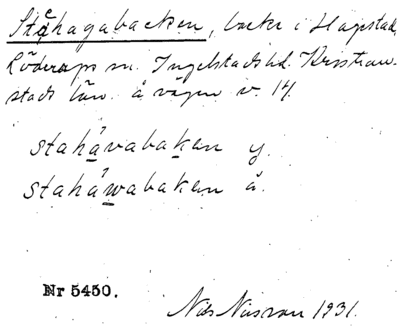 Stehagabacken, backe i Hagestad,
Löderups sn. Ingelstads hd. Kristian-
stads län. å vägen v. 14.
stahávabaken y.
staháwabaken å.
Nr 5450.
Nils Nilsson 1931.